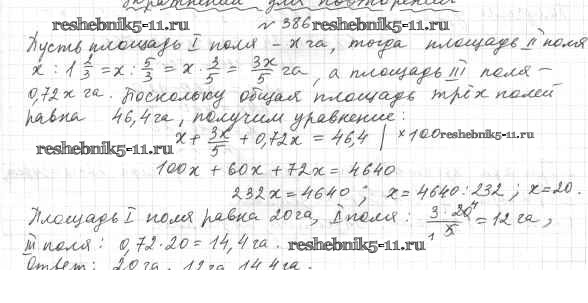 Упражнения для повторения
reshebnik5-11.ru № 386 reshebnik5-11.ru
Пусть площадь I поля – x га, тогда площадь II поля
x : 1 2/3 = x : 5/3 = x · 3/5 = 3x/5 га, а площадь III поля –
0,72x га. Поскольку общая площадь трёх полей
равна 46,4 га, получим уравнение:
reshebnik5-11.ru x + 3x/5 + 0,72x = 46,4 | ×100 reshebnik5-11.ru
100x + 60x + 72x = 4640
232x = 4640 ; x = 4640 : 232 ; x = 20.
Площадь I поля равна 20 га, II поля : 3 · 20 4 / 1 5 = 12 га ,
III поля : 0,72 · 20 = 14,4 га . reshebnik5-11.ru
Ответ: 20 га, 12 га, 14,4 га .